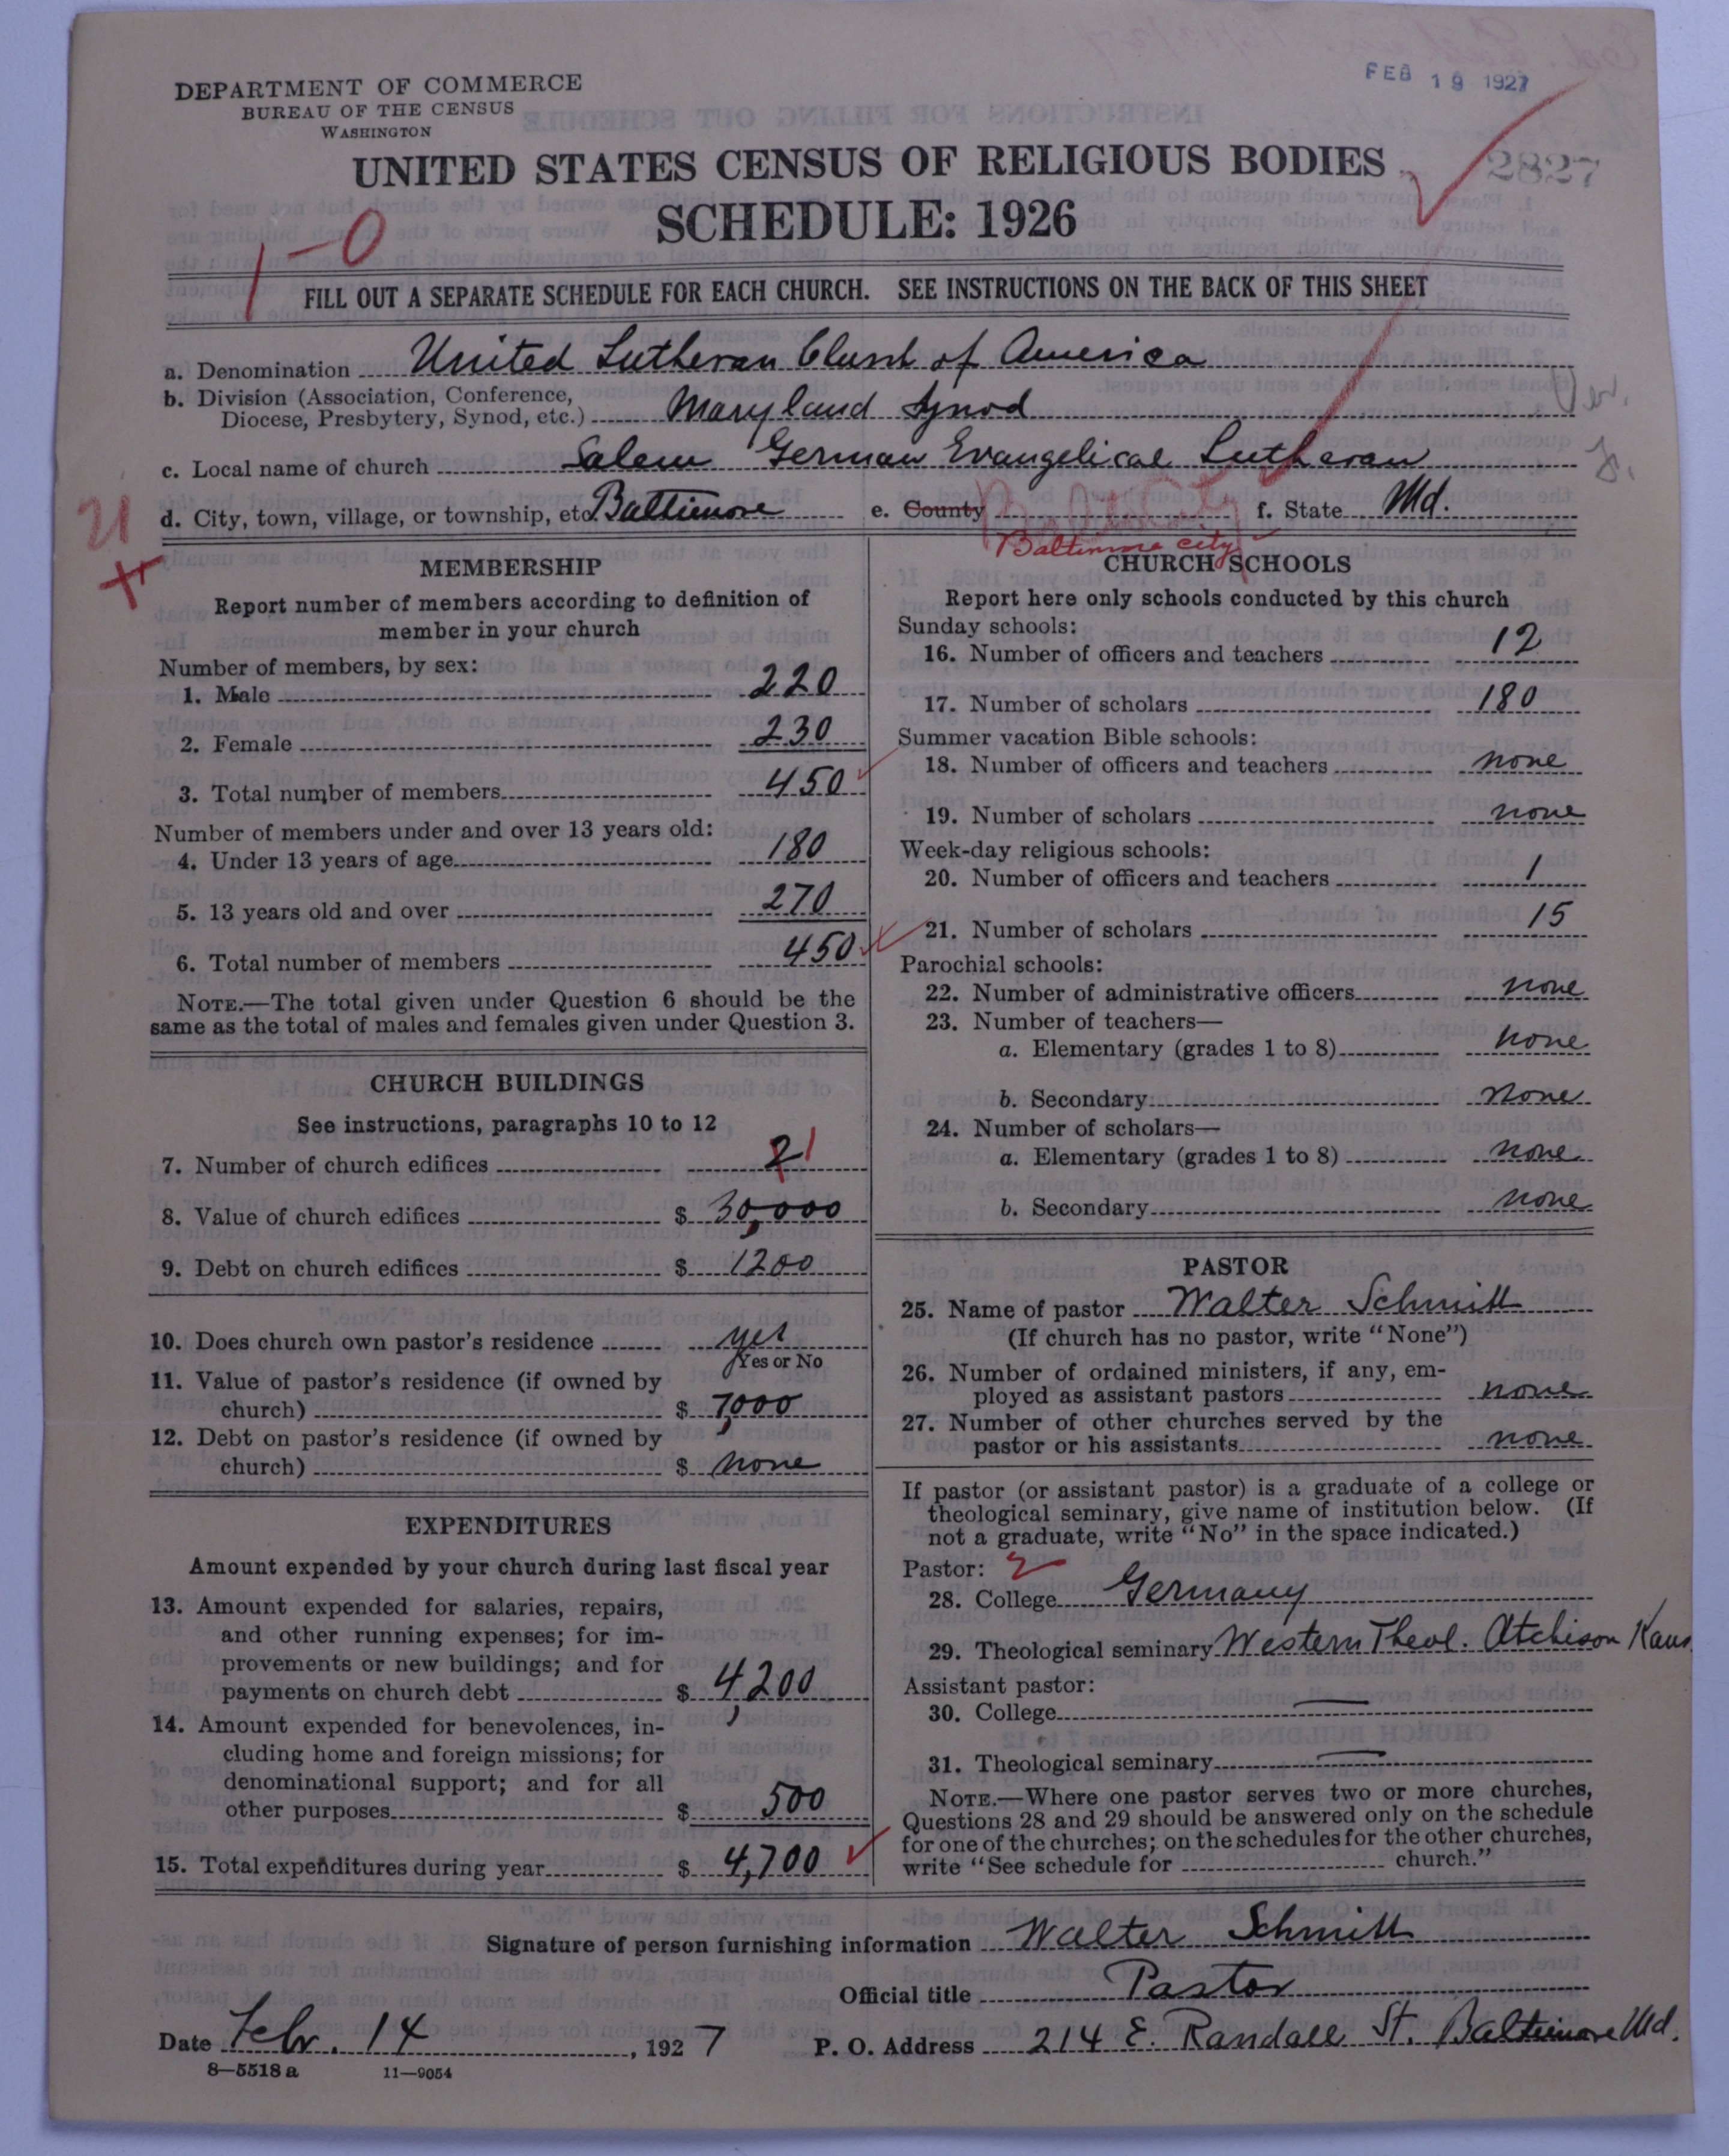 FEB 19 1927
DEPARTMENT OF COMMERCE
BUREAU OF THE CENSUS
WASHINGTON
UNITED STATES CENSUS OF RELIGIOUS BODIES
2827
SCHEDULE: 1926
1-0
FILL OUT A SEPARATE SCHEDULE FOR EACH CHURCH. SEE INSTRUCTIONS ON THE BACK OF THIS SHEET
a. Denomination United Lutheran Church of America
b. Division (Association, Conference,
Diocese, Presbytery, Synod, etc.) Maryland Synod
c. Local name of church Salem German Evangelical Lutheran
d. City, town, village, or township, etc. Baltimore e. County Balto City f. State Md.
21
Baltimore city
MEMBERSHIP
Report number of members according to definition of
member in your church
Number of members, by sex:
1. Male 220
2. Female 230
3. Total number of members 450
Number of members under and over 13 years old:
4. Under 13 years of age 180
5. 13 years old and over 270
6. Total number of members 450
NOTE.—The total given under Question 6 should be the
same as the total of males and females given under Question 3.
CHURCH BUILDINGS
See instructions, paragraphs 10 to 12
7. Number of church edifices 2 1
8. Value of church edifices $ 30,000
9. Debt on church edifices $ 1200
10. Does church own pastor's residence yes
Yes or No
11. Value of pastor's residence (if owned by
church) $ 7,000
12. Debt on pastor's residence (if owned by
church) $ none
EXPENDITURES
Amount expended by your church during last fiscal year
13. Amount expended for salaries, repairs,
and other running expenses; for im-
provements or new buildings; and for
payments on church debt $ 4,200
14. Amount expended for benevolences, in-
cluding home and foreign missions; for
denominational support; and for all
other purposes $ 500
15. Total expenditures during year $ 4,700
CHURCH SCHOOLS
Report here only schools conducted by this church
Sunday schools:
16. Number of officers and teachers 12
17. Number of scholars 180
Summer vacation Bible schools:
18. Number of officers and teachers none
19. Number of scholars none
Week-day religious schools:
20. Number of officers and teachers 1
21. Number of scholars 15
Parochial schools:
22. Number of administrative officers none
23. Number of teachers—
a. Elementary (grades 1 to 8) none
b. Secondary none
24. Number of scholars—
a. Elementary (grades 1 to 8) none
b. Secondary none
PASTOR
25. Name of pastor Walter Schmitt
(If church has no pastor, write "None")
26. Number of ordained ministers, if any, em-
ployed as assistant pastors none
27. Number of other churches served by the
pastor or his assistants none
If pastor (or assistant pastor) is a graduate of a college or
theological seminary, give name of institution below. (If
not a graduate, write "No" in the space indicated.)
Pastor: 2
28. College Germany
29. Theological seminary Western Theol. Atchison Kans
Assistant pastor:
30. College —
31. Theological seminary —
NOTE.—Where one pastor serves two or more churches,
Questions 28 and 29 should be answered only on the schedule
for one of the churches; on the schedules for the other churches,
write "See schedule for church."
Signature of person furnishing information Walter Schmitt
Official title Pastor
Date Febr. 14, 1927 P. O. Address 214 E. Randall St. Baltimore Md.
8—5518 a 11—9054